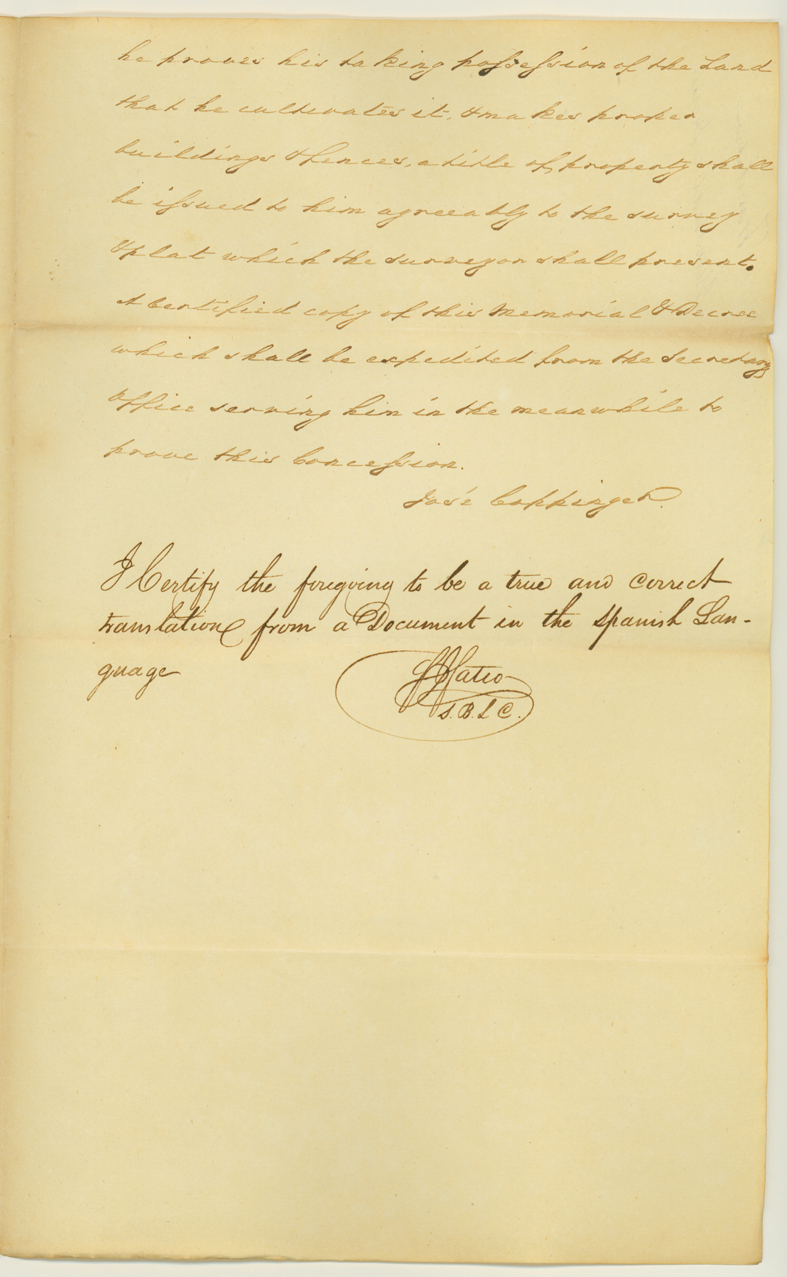 he proves his taking possession of the Land
that he cultivates it, & makes proper
buildings & fences, a title of property shall
be issued to him agreeably to the survey
& plat which the surveyor shall present.
A Certified copy of this Memorial & Decree
which shall be expedited from the Secretary
Office serving him in the meanwhile to
prove this Concession.
José Coppinger.
I Certify the foregoing to be a true and correct
translation from a Document in the Spanish Lan-
guage
S.B.L.C.